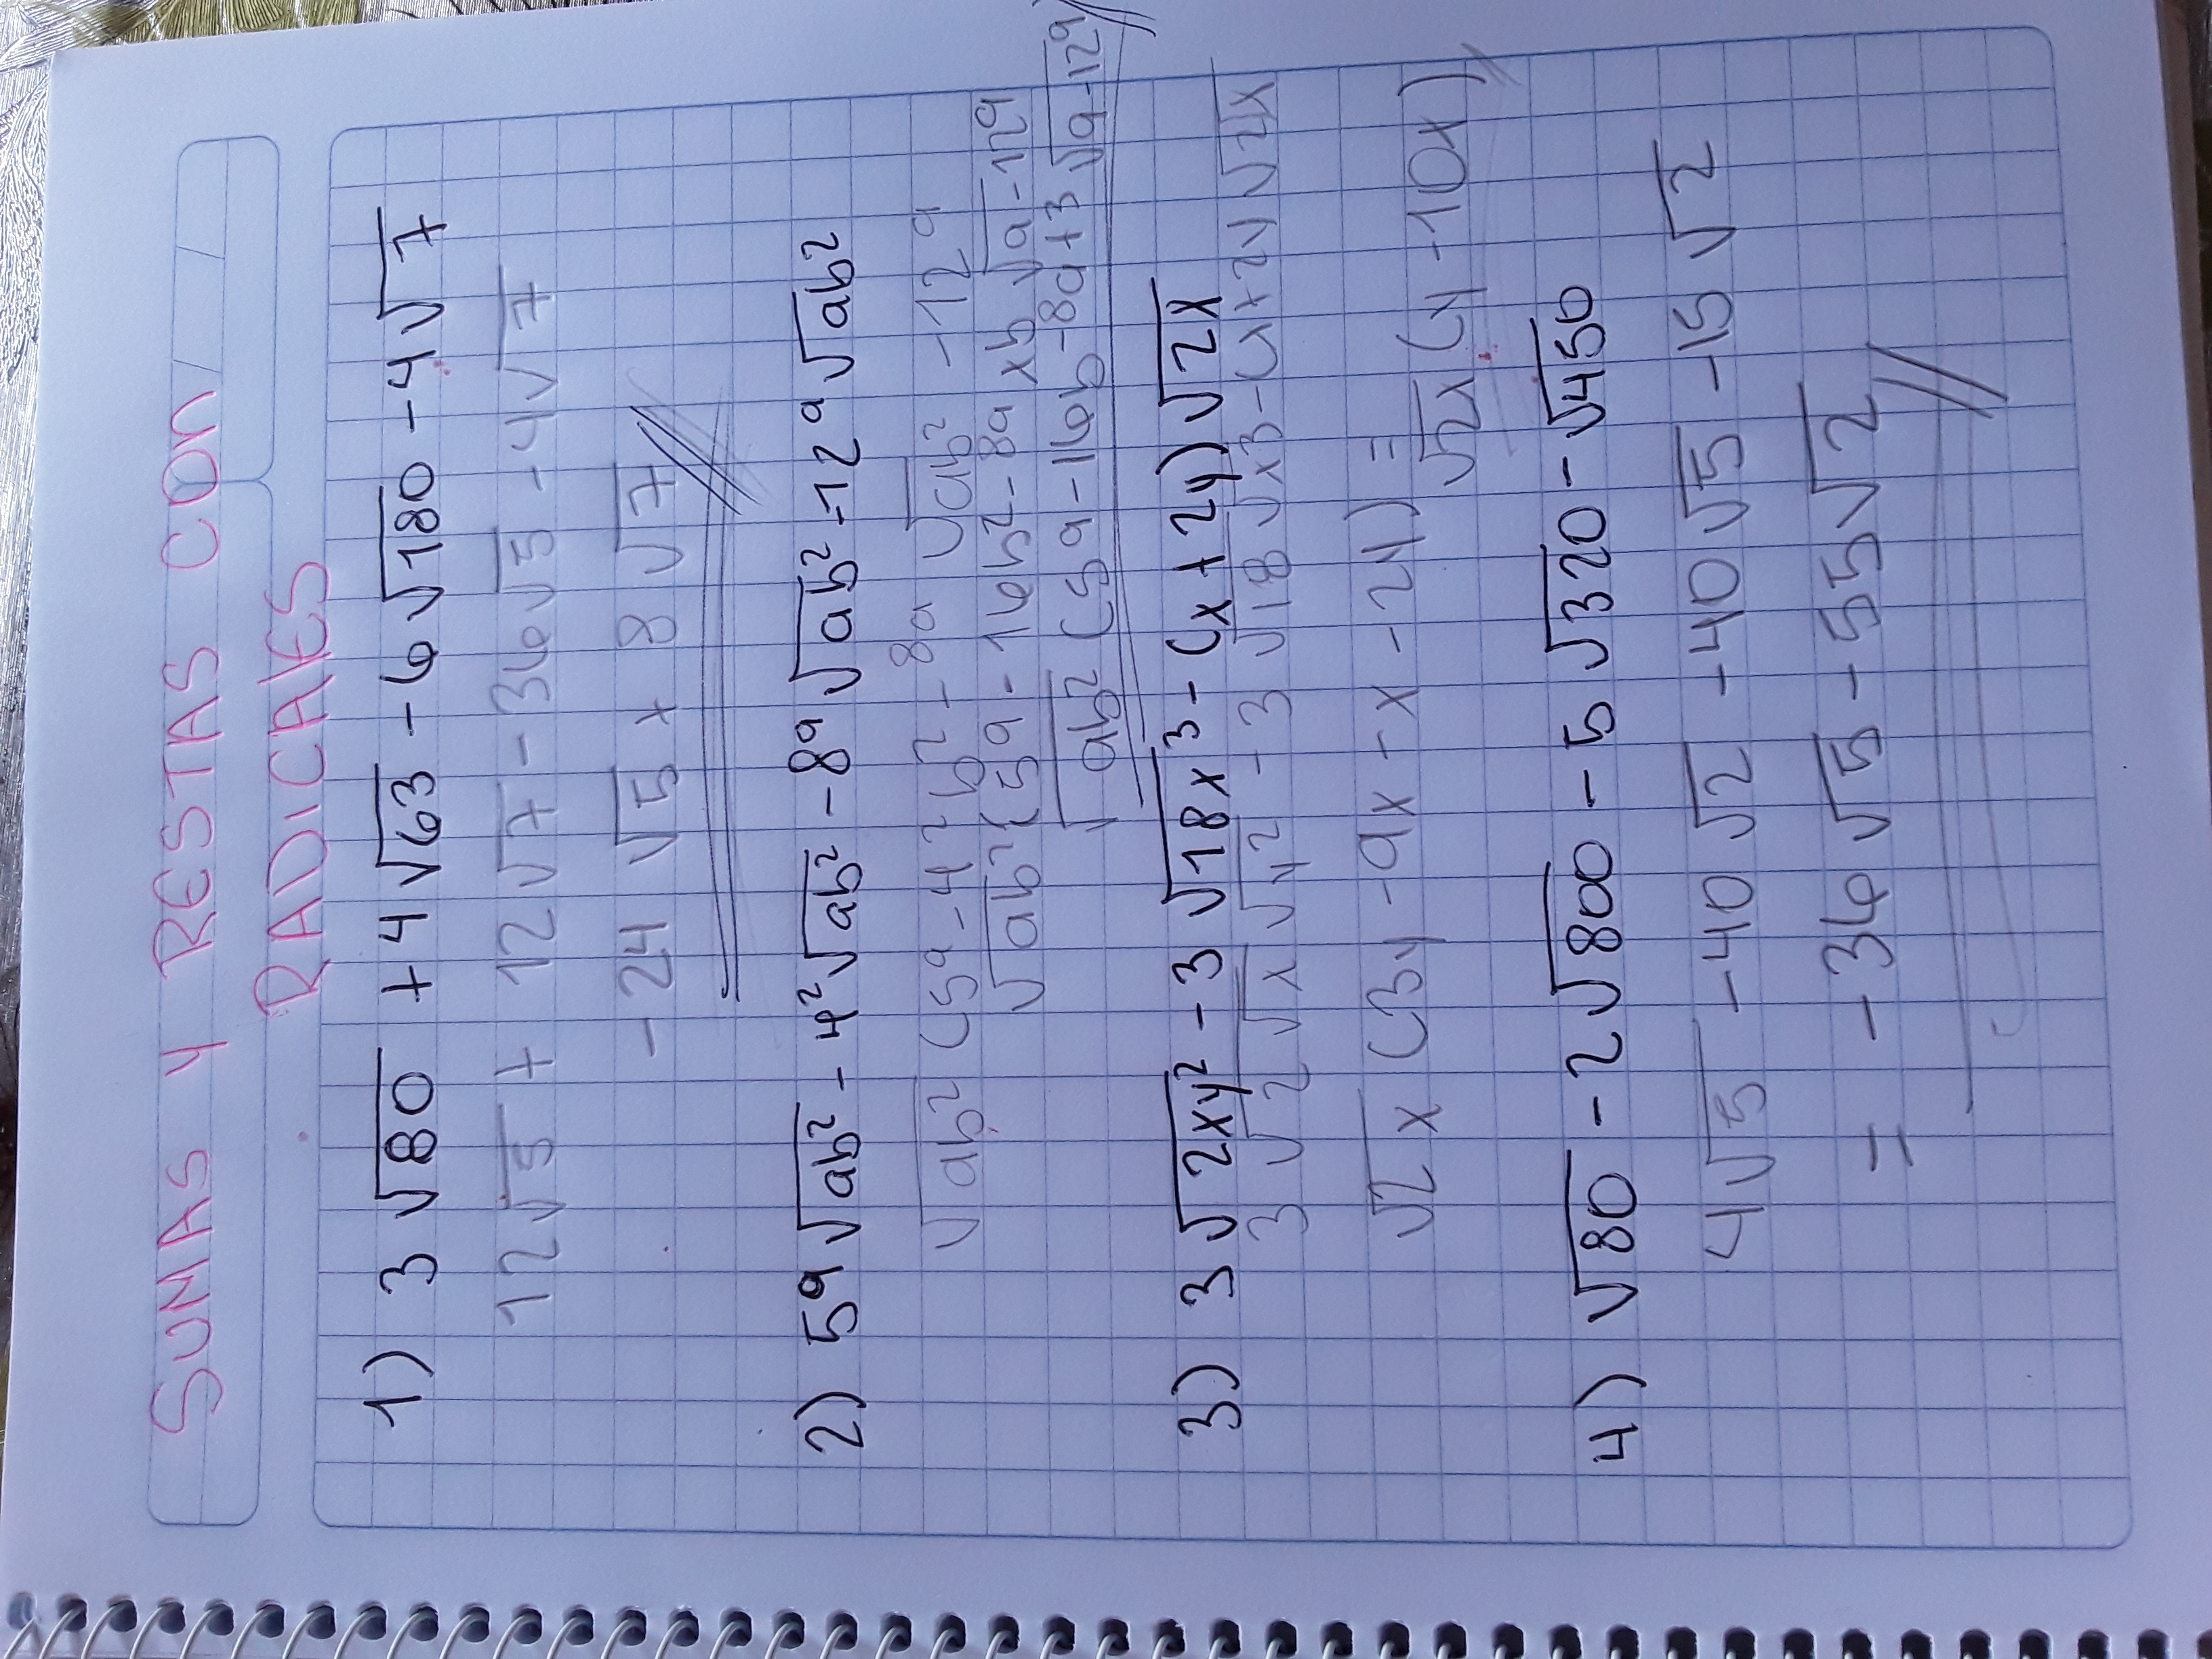 SUMAS Y RESTAS CON
RADICALES
1) 3 √80 + 4 √63 - 6 √180 - 4 √7
12 √5 + 12 √7 - 36 √5 - 4 √7
- 24 √5 + 8 √7
2) 5ᵃ √ab² - 4² √ab² - 8ᵃ √ab² - 12ᵃ √ab²
√ab² (5ᵃ - 4² b² - 8ᵃ √ab² - 12ᵃ
√ab² (5ᵃ - 16b² - 8a xb √a - 12ᵃ
√ab² (5ᵃ - 16b - 8a + 3 √a - 12ᵃ
3) 3 √2xy² - 3 √18x³ - (x + 2y) √2x
3 √2 √x √y² - 3 √18 √x3 - (x + 2y √2x
√2x (3y - 9x - x - 2y) =
√2x (y - 10x)
4) √80 - 2 √800 - 5 √320 - √450
4 √5 - 40 √2 - 40 √5 - 15 √2
= - 36 √5 - 55 √2